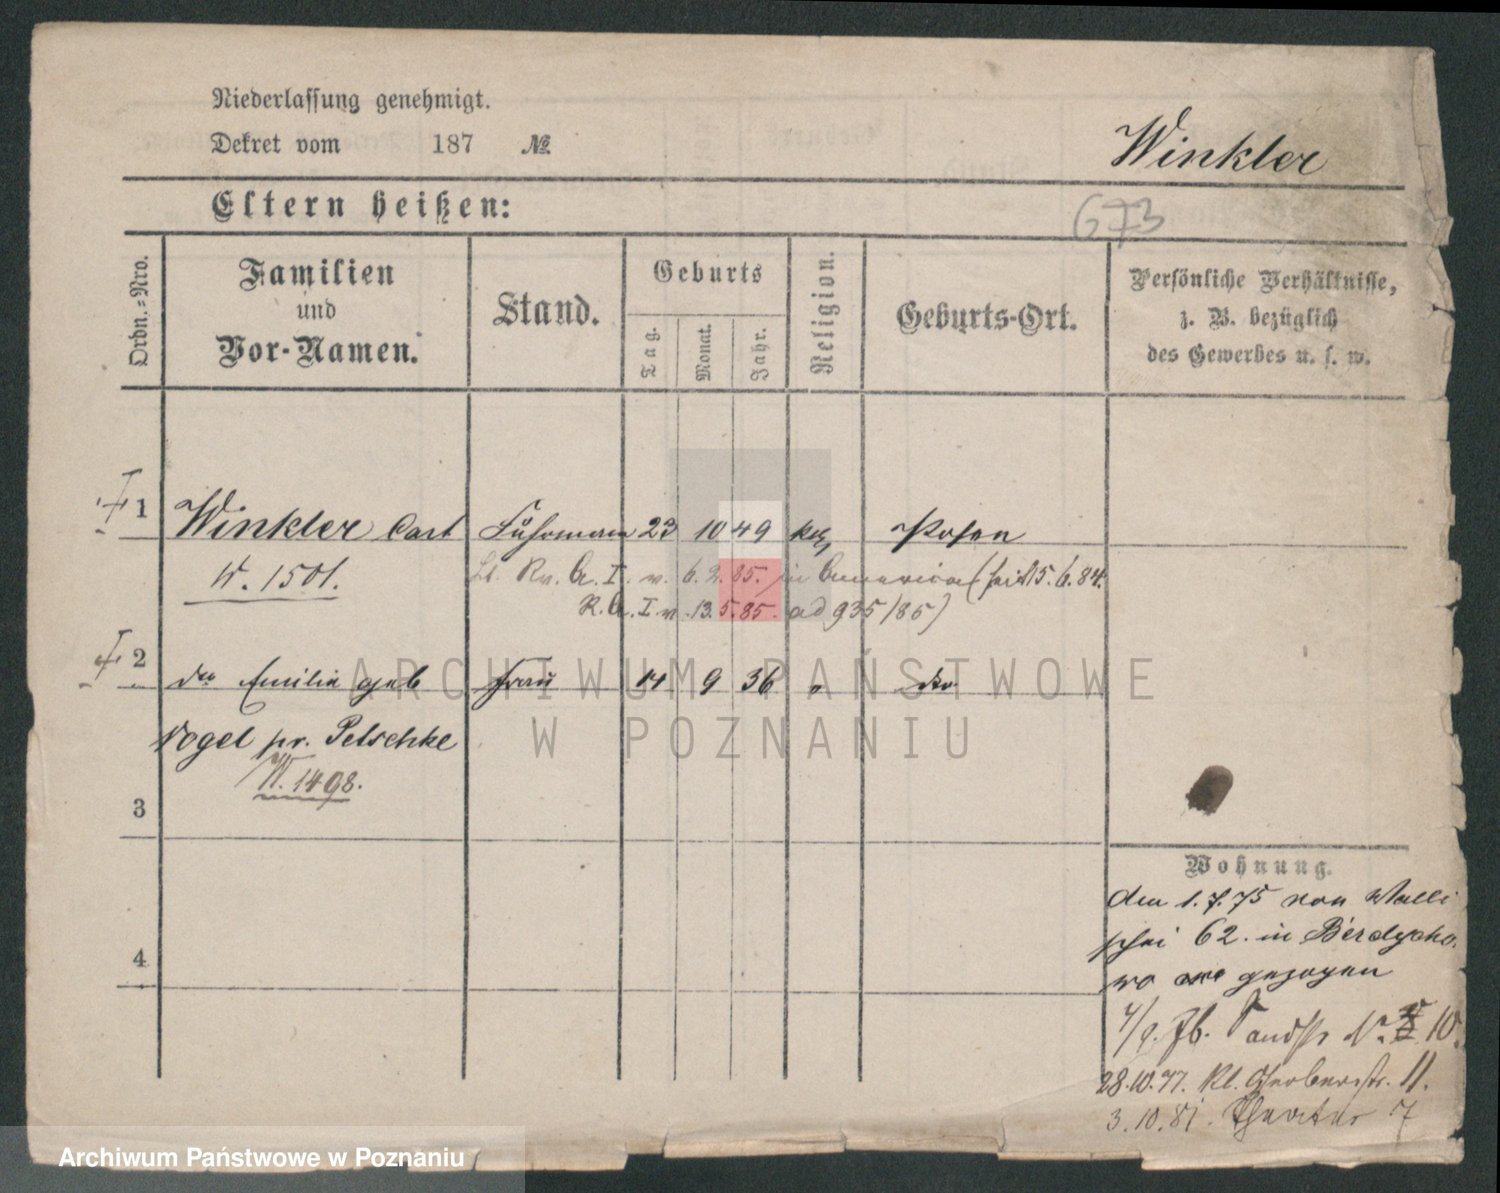 Niederlassung genehmigt.
Dekret vom 187 №
Winkler
Eltern heißen:
673
Ordn.-Nro.
Familien
und
Vor-Namen.
Stand.
Geburts
Tag.
Monat.
Jahr.
Religion.
Geburts-Ort.
Persönliche Verhältnisse,
z. B. bezüglich
des Gewerbes u. s. w.
1 Winkler Carl Fuhrmann 23 10 49 kth Posen
W. 1501.
v. 6.2.85. in America (seit 15.6.84.
R. A. I v. 13.5.85. ad 935/85)
2 do Emilie geb Frau 14 9 36 " do
Vogel pr. Petschke
W. 1498.
3
4
Wohnung.
den 1.7.75 von Walli
schei 62. in Berdycho.
wo gezogen
4/9. 76. Sandstr No 10.
28.10.77. Kl. Gerberstr. 11.
3.10.81. 7
ARCHIWUM PAŃSTWOWE
W POZNANIU
Archiwum Państwowe w Poznaniu